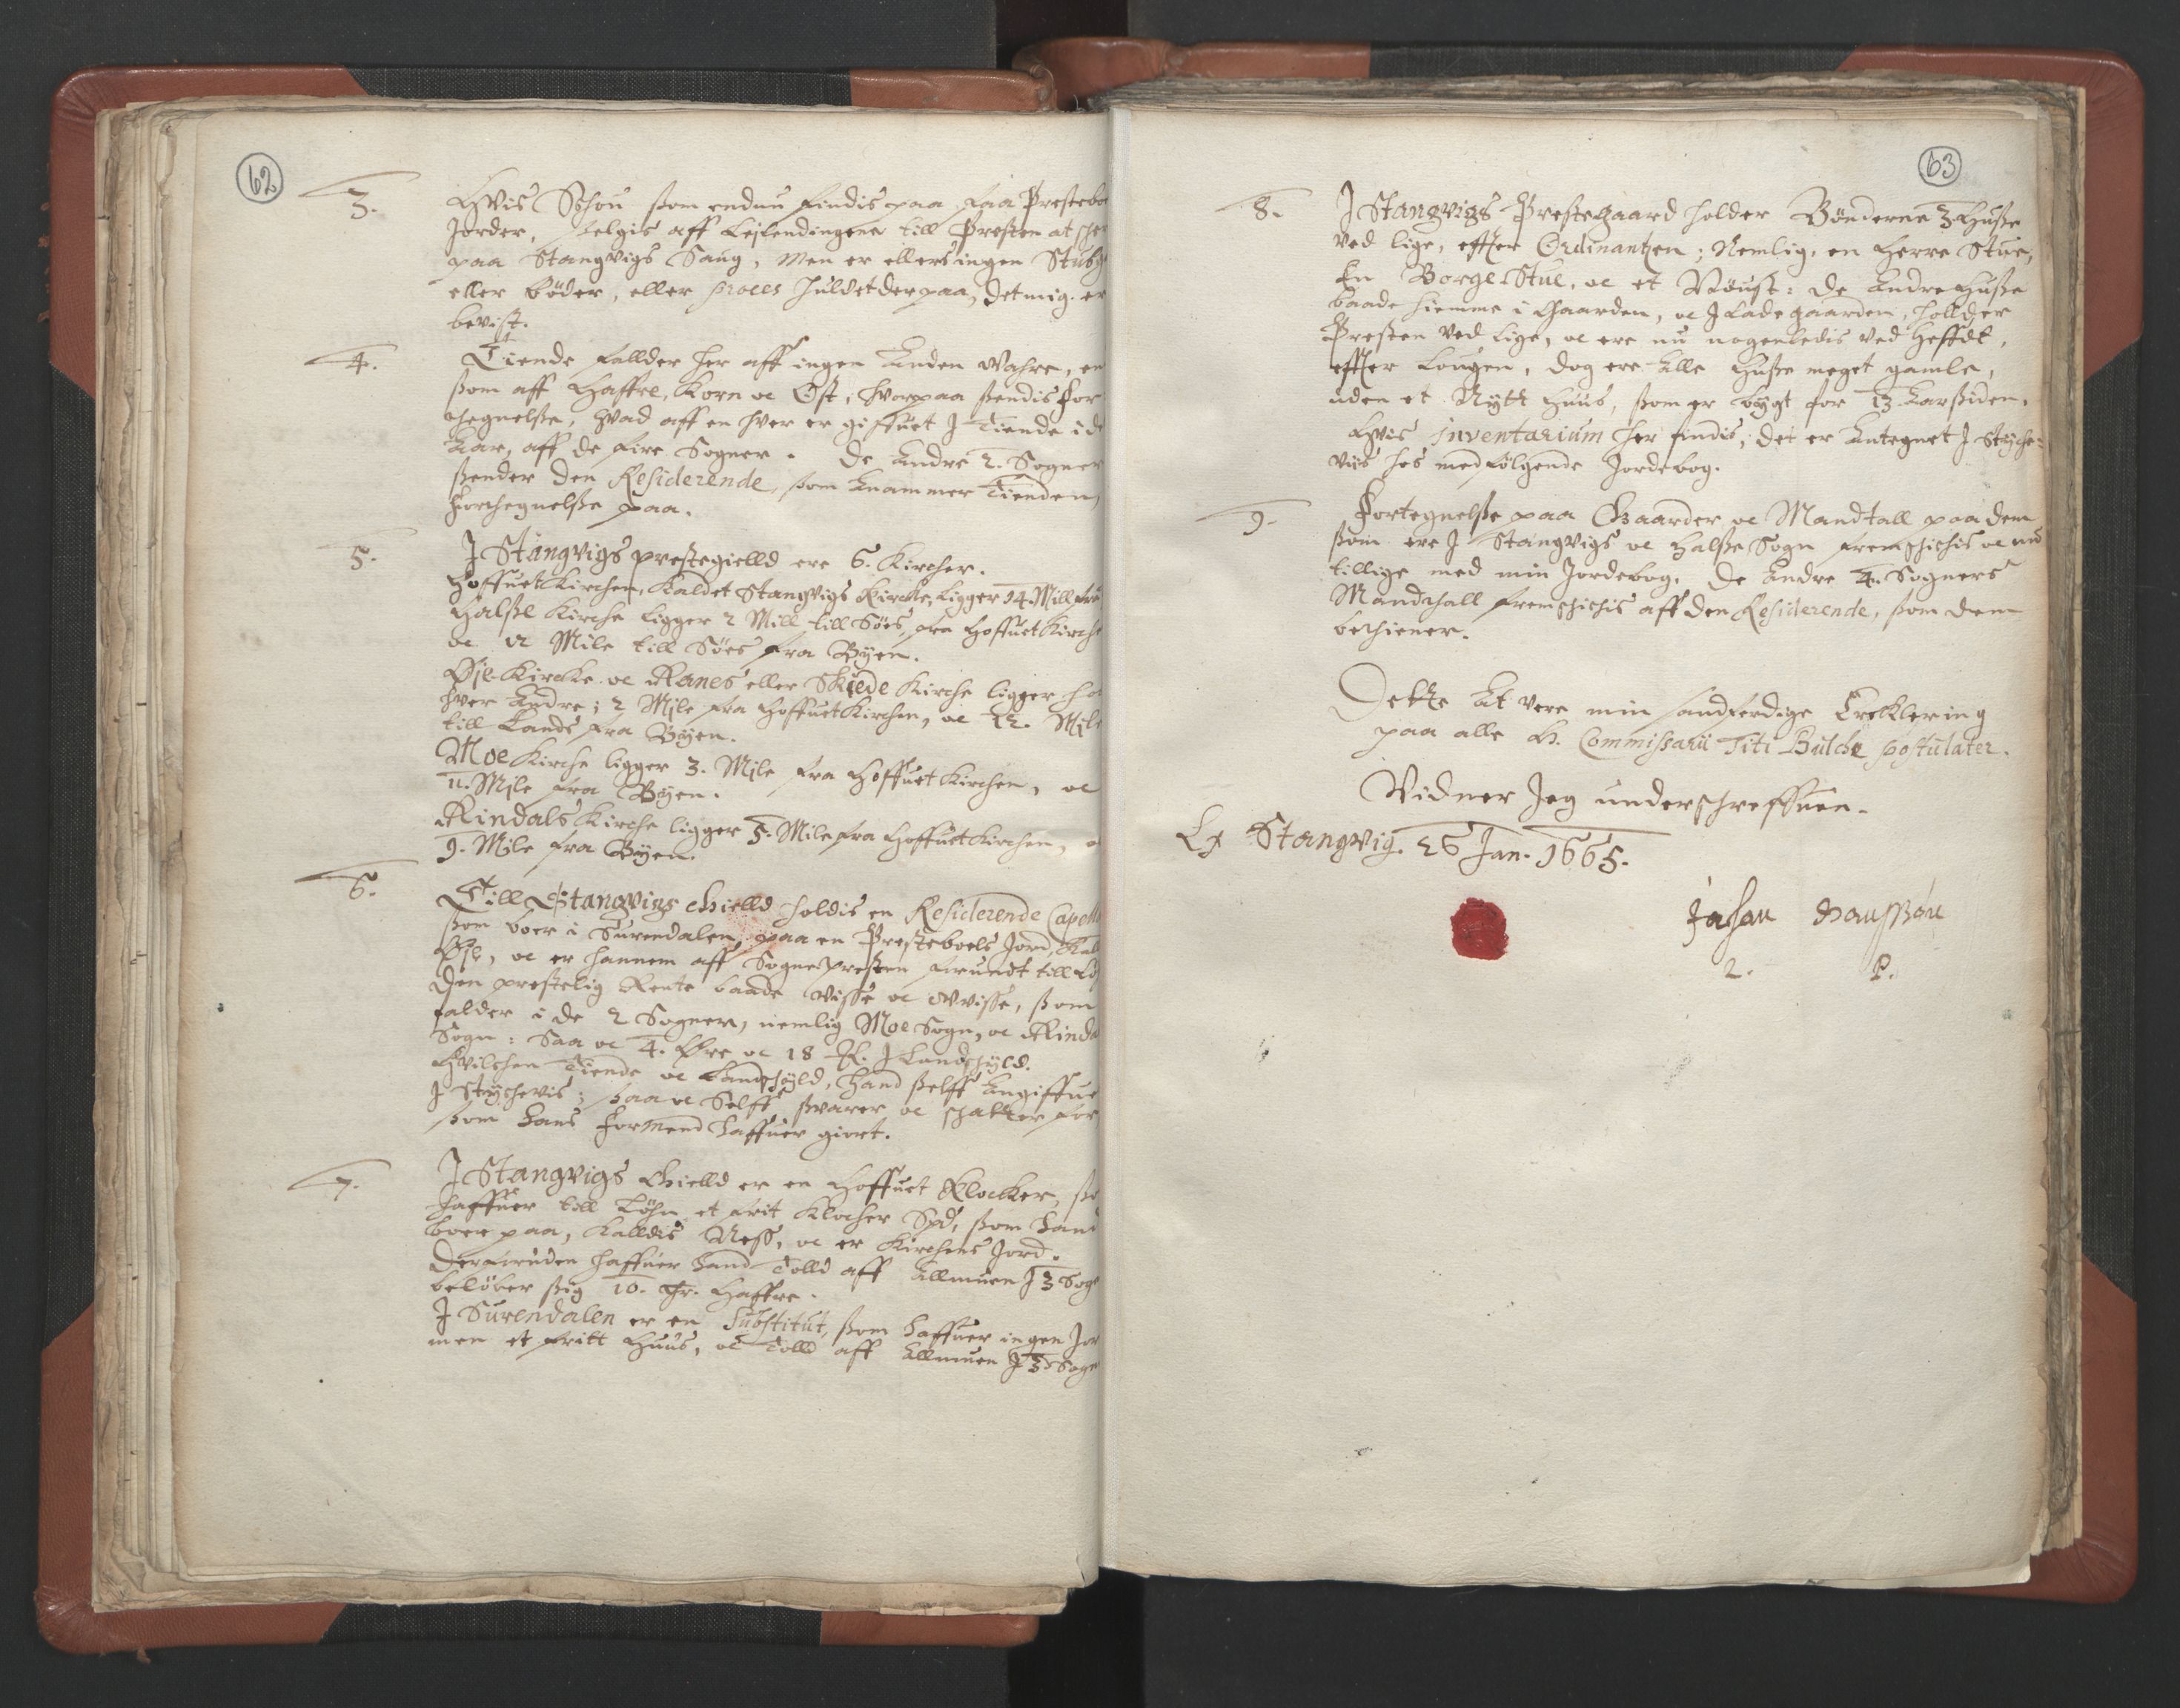 62
3. Hvis Schou som endnu findis paa faa Presteboe
Jorder, selgis aff Leilendingene till Presten at sche
paa Stangvigs Saug, Men er ellers ingen
eller bøder, eller proces huldet der paa, det mig er
bevist.
4. Tiende fallder her aff ingen Anden Wahre, en
som aff Haffre, Korn oc Ost, hvorpaa sendis For
thegnelsse, hvad aff en hver er giffuet J Tiende i d
Aar, aff de fire Sogner. De Andre 2. Sogner
sender den Residerende, som Anammer Tienden,
Forthegnelsse paa.
5. J Stangvigs prestegielld ere 6. Kircher.
Hoffuet Kirchen, Kaldet Stangvigs Kircke, Ligger 14. Mill fra
Halsse Kirche ligger 2 Mill till Søes, fra Hoffuet Kirche
oc Mile till Søes fra Byen.
Øje Kircke oc Ranes eller Skiede Kirche ligger ho
hver Andre; 2 Mile fra Hoffuet Kirchen, oc 12. Mile
till Lands fra Byen.
Moe Kirche ligger 3. Mile fra Hoffuet Kirchen, oc
11. Mile fra Byen.
Rindals Kirche ligger 5. Mile fra Hoffuet Kirchen, o
9. Mile fra Byen.
6. Till Stangvigs Gielld holdis en Residerende Capell
som boer i Surendalen, paa en Presteboels Jord, Kal
Øje, oc er hannem aff Sognepresten forundt till
den prestelig Rente baade Visse oc Wvisse, som
falder i de 2 Sogner, nemlig Moe Sogn, oc Rinda
Sogn: Saa oc 4. Øre oc 18 J Landschyld.
Hvilchen Tiende oc Landschyld, Hand selff Angiffue
J Stychevis; saa oc Selff svarer oc schatter for
som Hans Formend Haffuer giort.
7. J Stangvigs Gielld er en Hoffuet Klocker, so
haffuer till Løhn et frit Klocher Spd, som Hand
boer paa, Kalldis Ness, oc er Kirchens Jord.
Der foruden haffuer Hand Tolld aff Allmuen J 3 Sog
beløber sig 10. Haffre.
J Surendalen er en Substitut, som Haffuer ingen Jor
men et fritt Huus, oc Tolld aff Allmuen J 3 Sogn
63
8. J Stangvigs Prestegaard holder Bønderne 3 Husse
ved lige, effter Ordinantzen; Nemlig, en Herre Stue,
En Borge-Stue, oc et Nøust: De Andre Husse
baade hiemme i Gaarden, oc J Ladegaarden, hollder
Presten Ved Lige, oc ere nu nogenledis ved Heffdt,
effter Lougen, dog ere Alle Husse meget gamle,
uden et Nytt Huus, som er bygt for 13 Aar siden.
Hvis inventarium her findis, det er Antegnet J Styche-
viis hos medfølgende Jordebog.
9. Fortegnelsse paa Gaarder oc Mandtall paa dem
som ere J Stangvigs oc Halsse Sogn fremschichis oc nu
tillige med min Jordebog. De Andre 4. Sogners
Mandthall fremschichis aff den Residerende, som dem
bethiener.
Dette At vere min sandferdige Ercklering
paa alle H. Commissarii Titi Bulche postulater.
Vidner Jeg underschreffuen.
Ex Stangvig. 26 Jan. 1665.
Johan Hanssøn